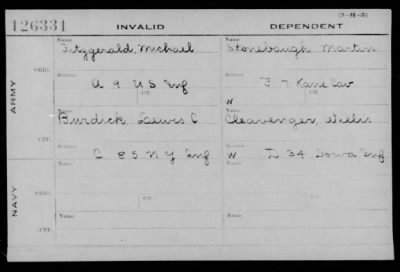 (3-11-5)
126331 INVALID DEPENDENT
Name Name
Fitzgerald, Michael Stonebaugh Martin
ORIG. Service Service
A 9 U S Inf F 7 Kans Cav
CTF. CTF.
N
ARMY
Name Name
Burdick Lewis C Cleavenger, Willis
Service Service
C 85 N Y Inf W I 34 Iowa Inf
Name Name
NAVY
ORIG.
CTF.
Name Name